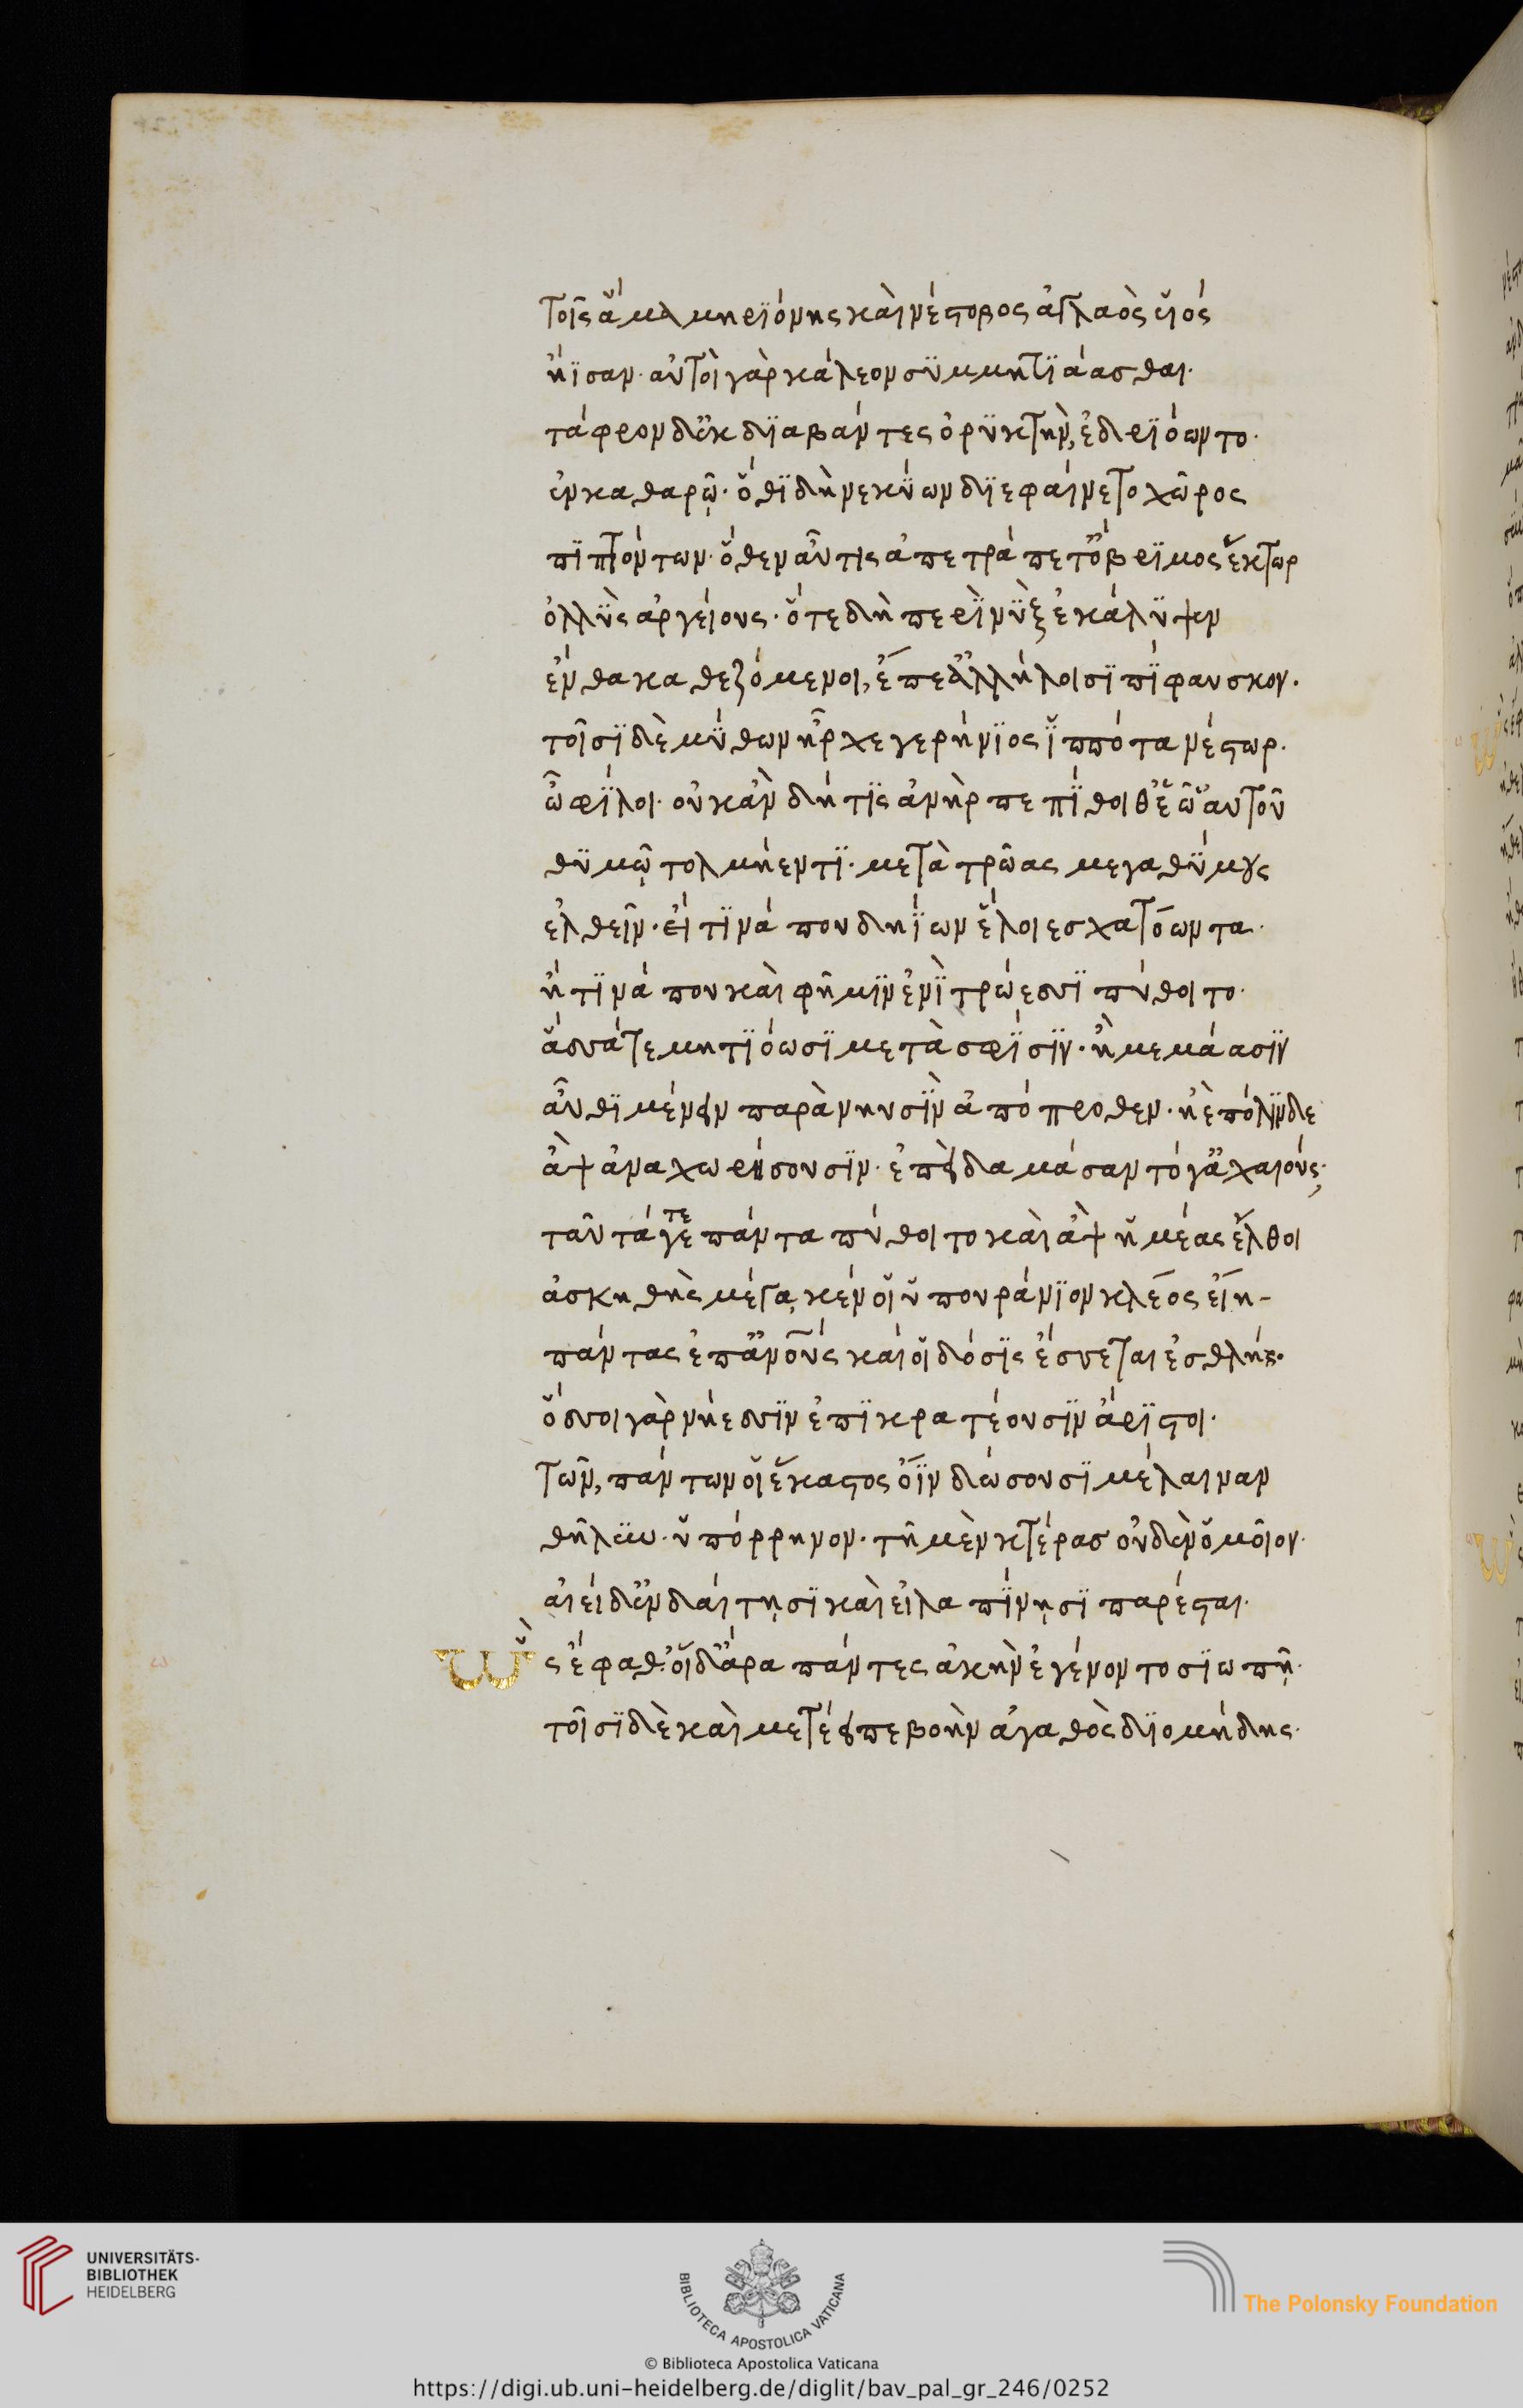 τοῖς ἅμα μηριόνης καὶ νέστορος ἀγλαὸς υἱός
ἤϊσαν· αὐτοὶ γὰρ κάλεον συμμητιάασθαι·
τάφρον δ' ἐκ διαβάντες ὀρυκτὴν, ἑδριόωντο·
ἐν καθαρῷ· ὅθι δὴ νεκύων διεφαίνετο χῶρος
πιπτόντων· ὅθεν αὖτις ἀπετράπετ' ὄβριμος ἕκτωρ
ὀλλὺς ἀργείους· ὅτε δὴ περὶ νὺξ ἐκάλυψεν
ἔνθα καθεζόμενοι, ἔπε' ἀλλήλοισι πίφαυσκον.
τοῖσι δὲ μύθων ἦρχε γερήνιος ἱππότα νέστωρ.
ὦ φίλοι· οὐκ ἂν δή τις ἀνὴρ πεπίθοιθ' ἑῷ αὐτοῦ
θυμῷ τολμήεντι· μετὰ τρῶας μεγαθύμους
ἐλθεῖν· εἴ τινά που δηΐων ἕλοι ἐσχατόωντα·
ἤ τινά που καὶ φῆμιν ἐνὶ τρώεσσι πύθοιτο·
ἅσσά τε μητιόωσι μετὰ σφίσιν· ἢ μεμάασιν
αὖθι μένειν παρὰ νηυσὶν ἀπόπροθεν· ἠὲ πόλινδε
ἂψ ἀναχωρήσουσιν· ἐπεὶ δαμάσαντό γ' ἀχαιούς;
ταῦτά γε τε πάντα πύθοιτο καὶ ἂψ ἡμέας ἔλθοι
ἀσκηθὴς μέγα κέν οἱ ὑπουράνιον κλέος εἴη-
πάντας ἐπ' ἀν'ούς καί οἱ δόσις ἔσσεται ἐσθλή·
ὅσσοι γὰρ νήεσσιν ἐπικρατέουσιν ἄριστοι·
τῶν, πάντων οἱ ἕκαστος ὄϊν δώσουσι μέλαιναν
θῆλυν· ὑπόρρηνον· τῇ μὲν κτέρας οὐδὲν ὁμοῖον·
αἰεὶ δ' ἐν δαίτῃσι καὶ εἰλαπίνῃσι παρέσται·
Ὣς ἔφαθ' οἱ δ' ἄρα πάντες ἀκὴν ἐγένοντο σιωπῇ·
τοῖσι δὲ καὶ μετέειπε βοὴν ἀγαθὸς διομήδης·
UNIVERSITÄTS-
BIBLIOTHEK
HEIDELBERG
BIBLIOTECA APOSTOLICA VATICANA
The Polonsky Foundation
© Biblioteca Apostolica Vaticana
https://digi.ub.uni-heidelberg.de/diglit/bav_pal_gr_246/0252